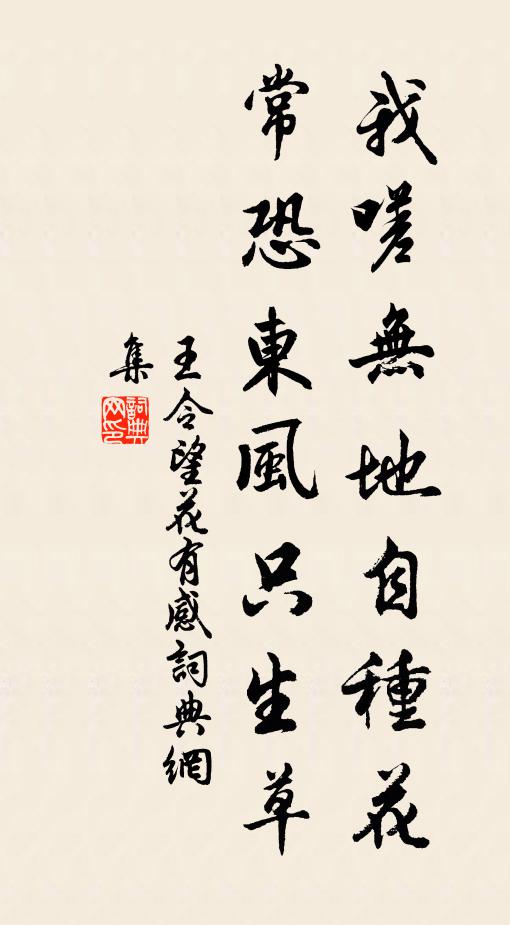 我嗟無地自種花
常恐東風只生草
王令望花有感詞典網
集
詞典
网印